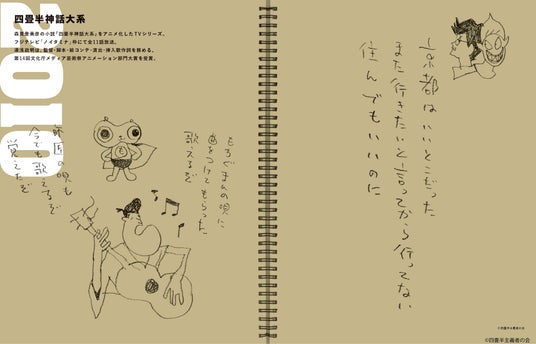 四畳半神話大系
森見登美彦の小説「四畳半神話大系」をアニメ化したTVシリーズ。
フジテレビ「ノイタミナ」枠にて全11話放送。
湯浅政明は、監督・脚本・絵コンテ・演出・挿入歌作詞を務める。
第14回文化庁メディア芸術祭アニメーション部門大賞を受賞。
2010
京都はいいとこだった
また行きたいと言ってから行ってない
住んでもいいのに
もちぐまんの唄に
曲をつけてもらった
歌えるぞ
師匠の唄も
今でも歌えるぞ
覚えてるぞ
©四畳半主義者の会
©四畳半主義者の会